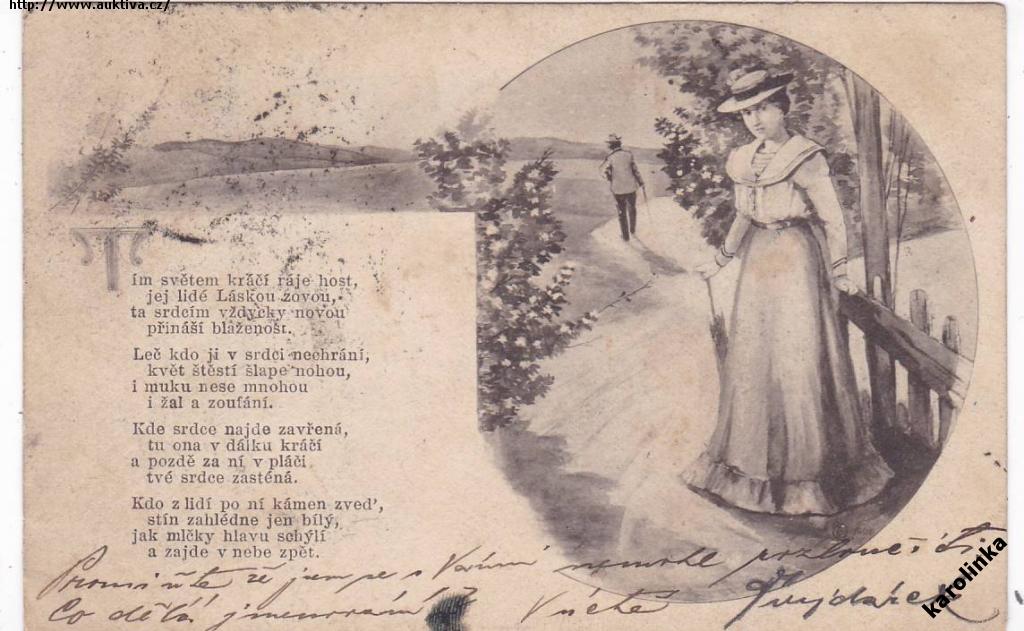 http://www.auktiva.cz/
Tím světem kráčí ráje host,
jej lidé Láskou zovou,
ta srdcím vždycky novou
přináší blaženost.
Leč kdo ji v srdci nechrání,
květ štěstí šlape nohou,
i muku nese mnohou
i žal a zoufání.
Kde srdce najde zavřená,
tu ona v dálku kráčí
a pozdě za ní v pláči
tvé srdce zasténá.
Kdo z lidí po ní kámen zved',
stín zahlédne jen bílý,
jak mlčky hlavu schýlí
a zajde v nebe zpět.
Promiňte že jsem se s Vámi nemohl rozloučiti.
Co dělá
karolinka